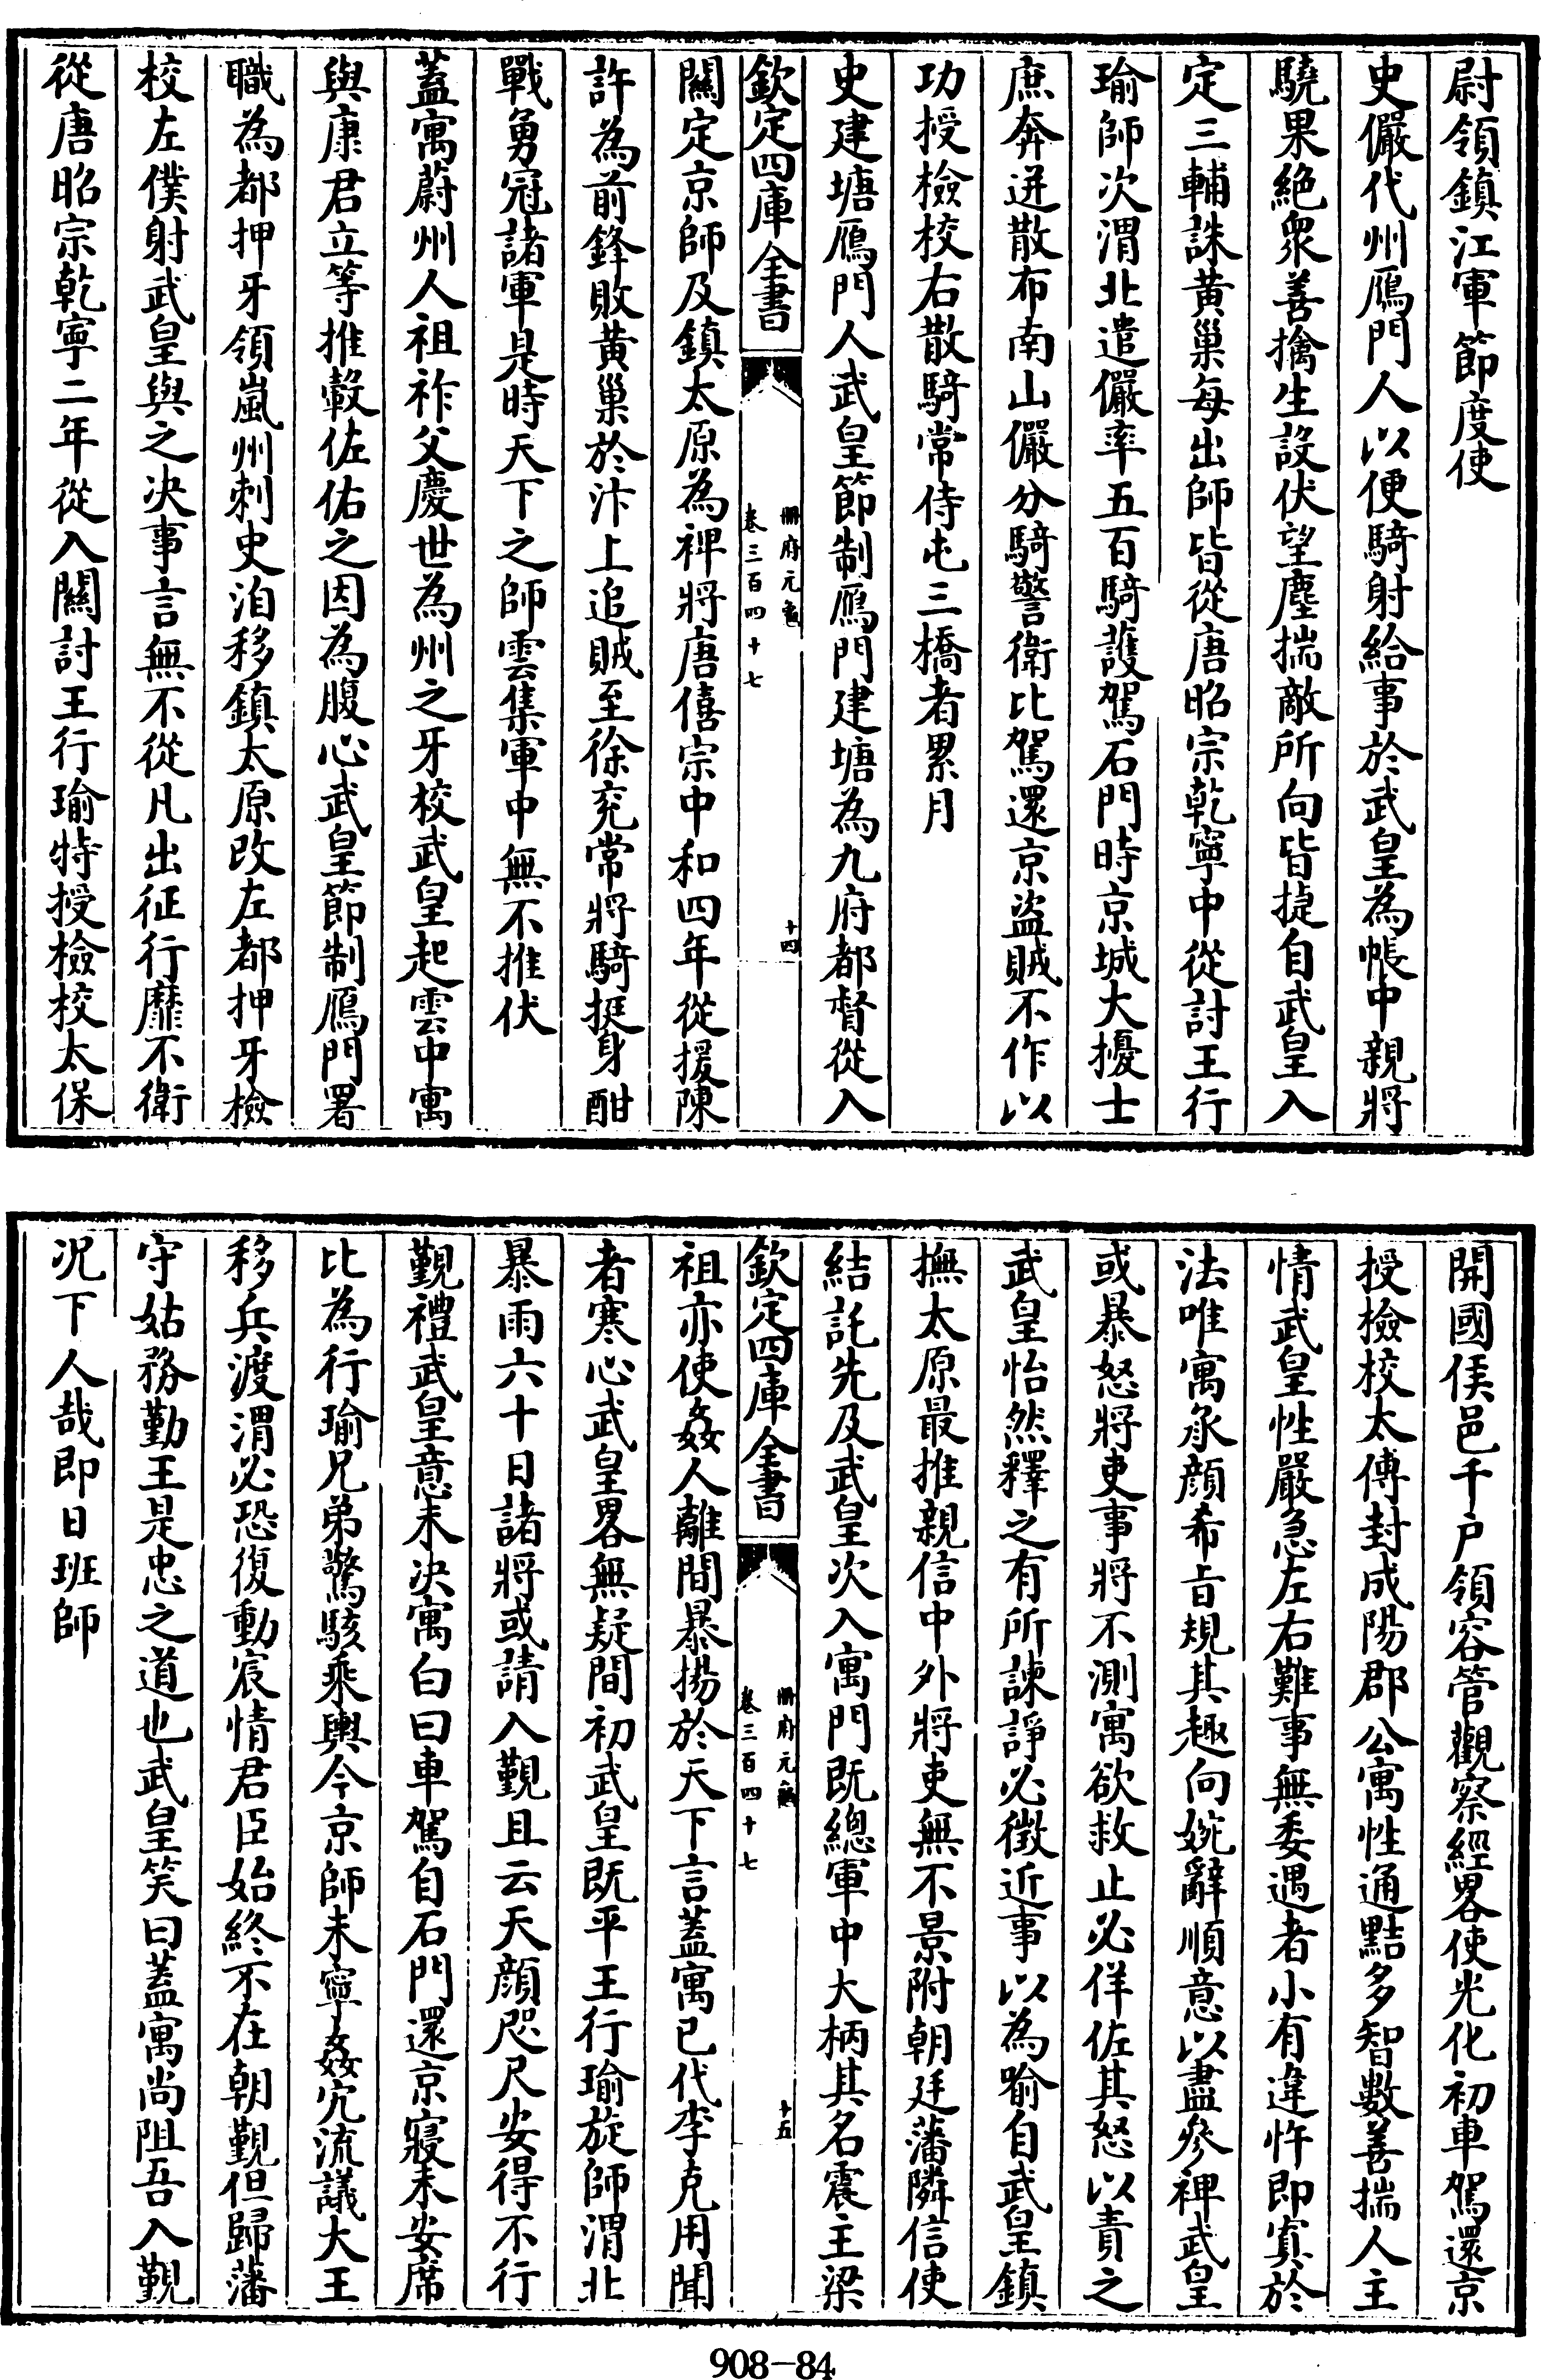 尉領鎮江軍節度使
史儼代州鴈門人以便騎射給事於武皇為帳中親將
驍果絶衆善擒生設伏望塵揣敵所向皆㨗自武皇入
定三輔誅黄巢每出師皆從唐昭宗乾寧中從討王行
瑜師次渭北遣儼率五百騎護駕石門時京城大擾士
庶奔迸散布南山儼分騎警衛比駕還京盜賊不作以
功授檢校右散騎常侍屯三橋者累月
史建塘鴈門人武皇節制鴈門建塘為九府都督從入
欽定四庫全書
冊府元龜
卷三百四十七
十四
關定京師及鎮太原為裨將唐僖宗中和四年從援陳
許為前鋒敗黄巢於汴上追賊至徐兖常將騎挺身酣
戰勇冠諸軍是時天下之師雲集軍中無不推伏
蓋寓蔚州人祖祚父慶世為州之牙校武皇起雲中寓
與康君立等推轂佐佑之因為腹心武皇節制鴈門署
職為都押牙領嵐州刺史洎移鎮太原改左都押牙檢
校左僕射武皇與之决事言無不從凡出征行靡不衛
從唐昭宗乾寧二年從入關討王行瑜特授檢校太保
開國侯邑千户領容管觀察經畧使光化初車駕還京
授檢校太傅封成陽郡公寓性通黠多智數善揣人主
情武皇性嚴急左右難事無委遇者小有違忤即寘於
法唯寓承顔希㫖規其趣向婉辭順意以盡參裨武皇
或暴怒將吏事將不測寓欲救止必佯佐其怒以責之
武皇怡然釋之有所諫諍必徵近事以為喻自武皇鎮
撫太原最推親信中外將吏無不景附朝廷藩隣信使
結託先及武皇次入寓門既總軍中大柄其名震主梁
欽定四庫全書
冊府元龜
卷三百四十七
十五
祖亦使姦人離間暴揚於天下言蓋寓已代李克用聞
者寒心武皇畧無疑間初武皇既平王行瑜旋師渭北
暴雨六十日諸將或請入覲且云天顔咫尺安得不行
覲禮武皇意未決寓白曰車駕自石門還京寢未安席
比為行瑜兄弟驚駭乘輿今京師未寧姦宄流議大王
移兵渡渭必恐復動宸情君臣始終不在朝覲但歸藩
守姑務勤王是忠之道也武皇笑曰蓋寓尚阻吾入覲
况下人哉即日班師
908-84